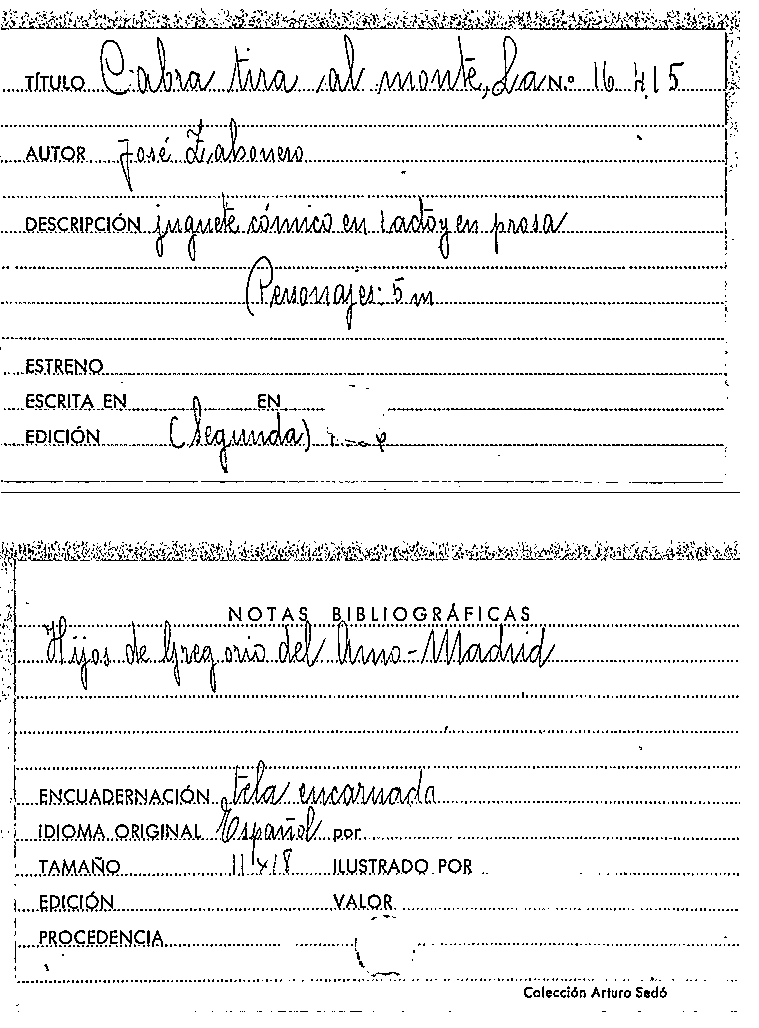 TÍTULO Cabra tira al monte, La N.º 16.415
AUTOR José Zabonero
DESCRIPCIÓN juguete cómico en 1 acto y en prosa
(Personajes: 5 m
ESTRENO
ESCRITA EN EN
EDICIÓN (Segunda)
NOTAS BIBLIOGRÁFICAS
Hijos de Gregorio del Amo - Madrid
ENCUADERNACIÓN tela encarnada
IDIOMA ORIGINAL Español por
TAMAÑO 11 x 18 ILUSTRADO POR
EDICIÓN VALOR
PROCEDENCIA
Colección Arturo Sedó